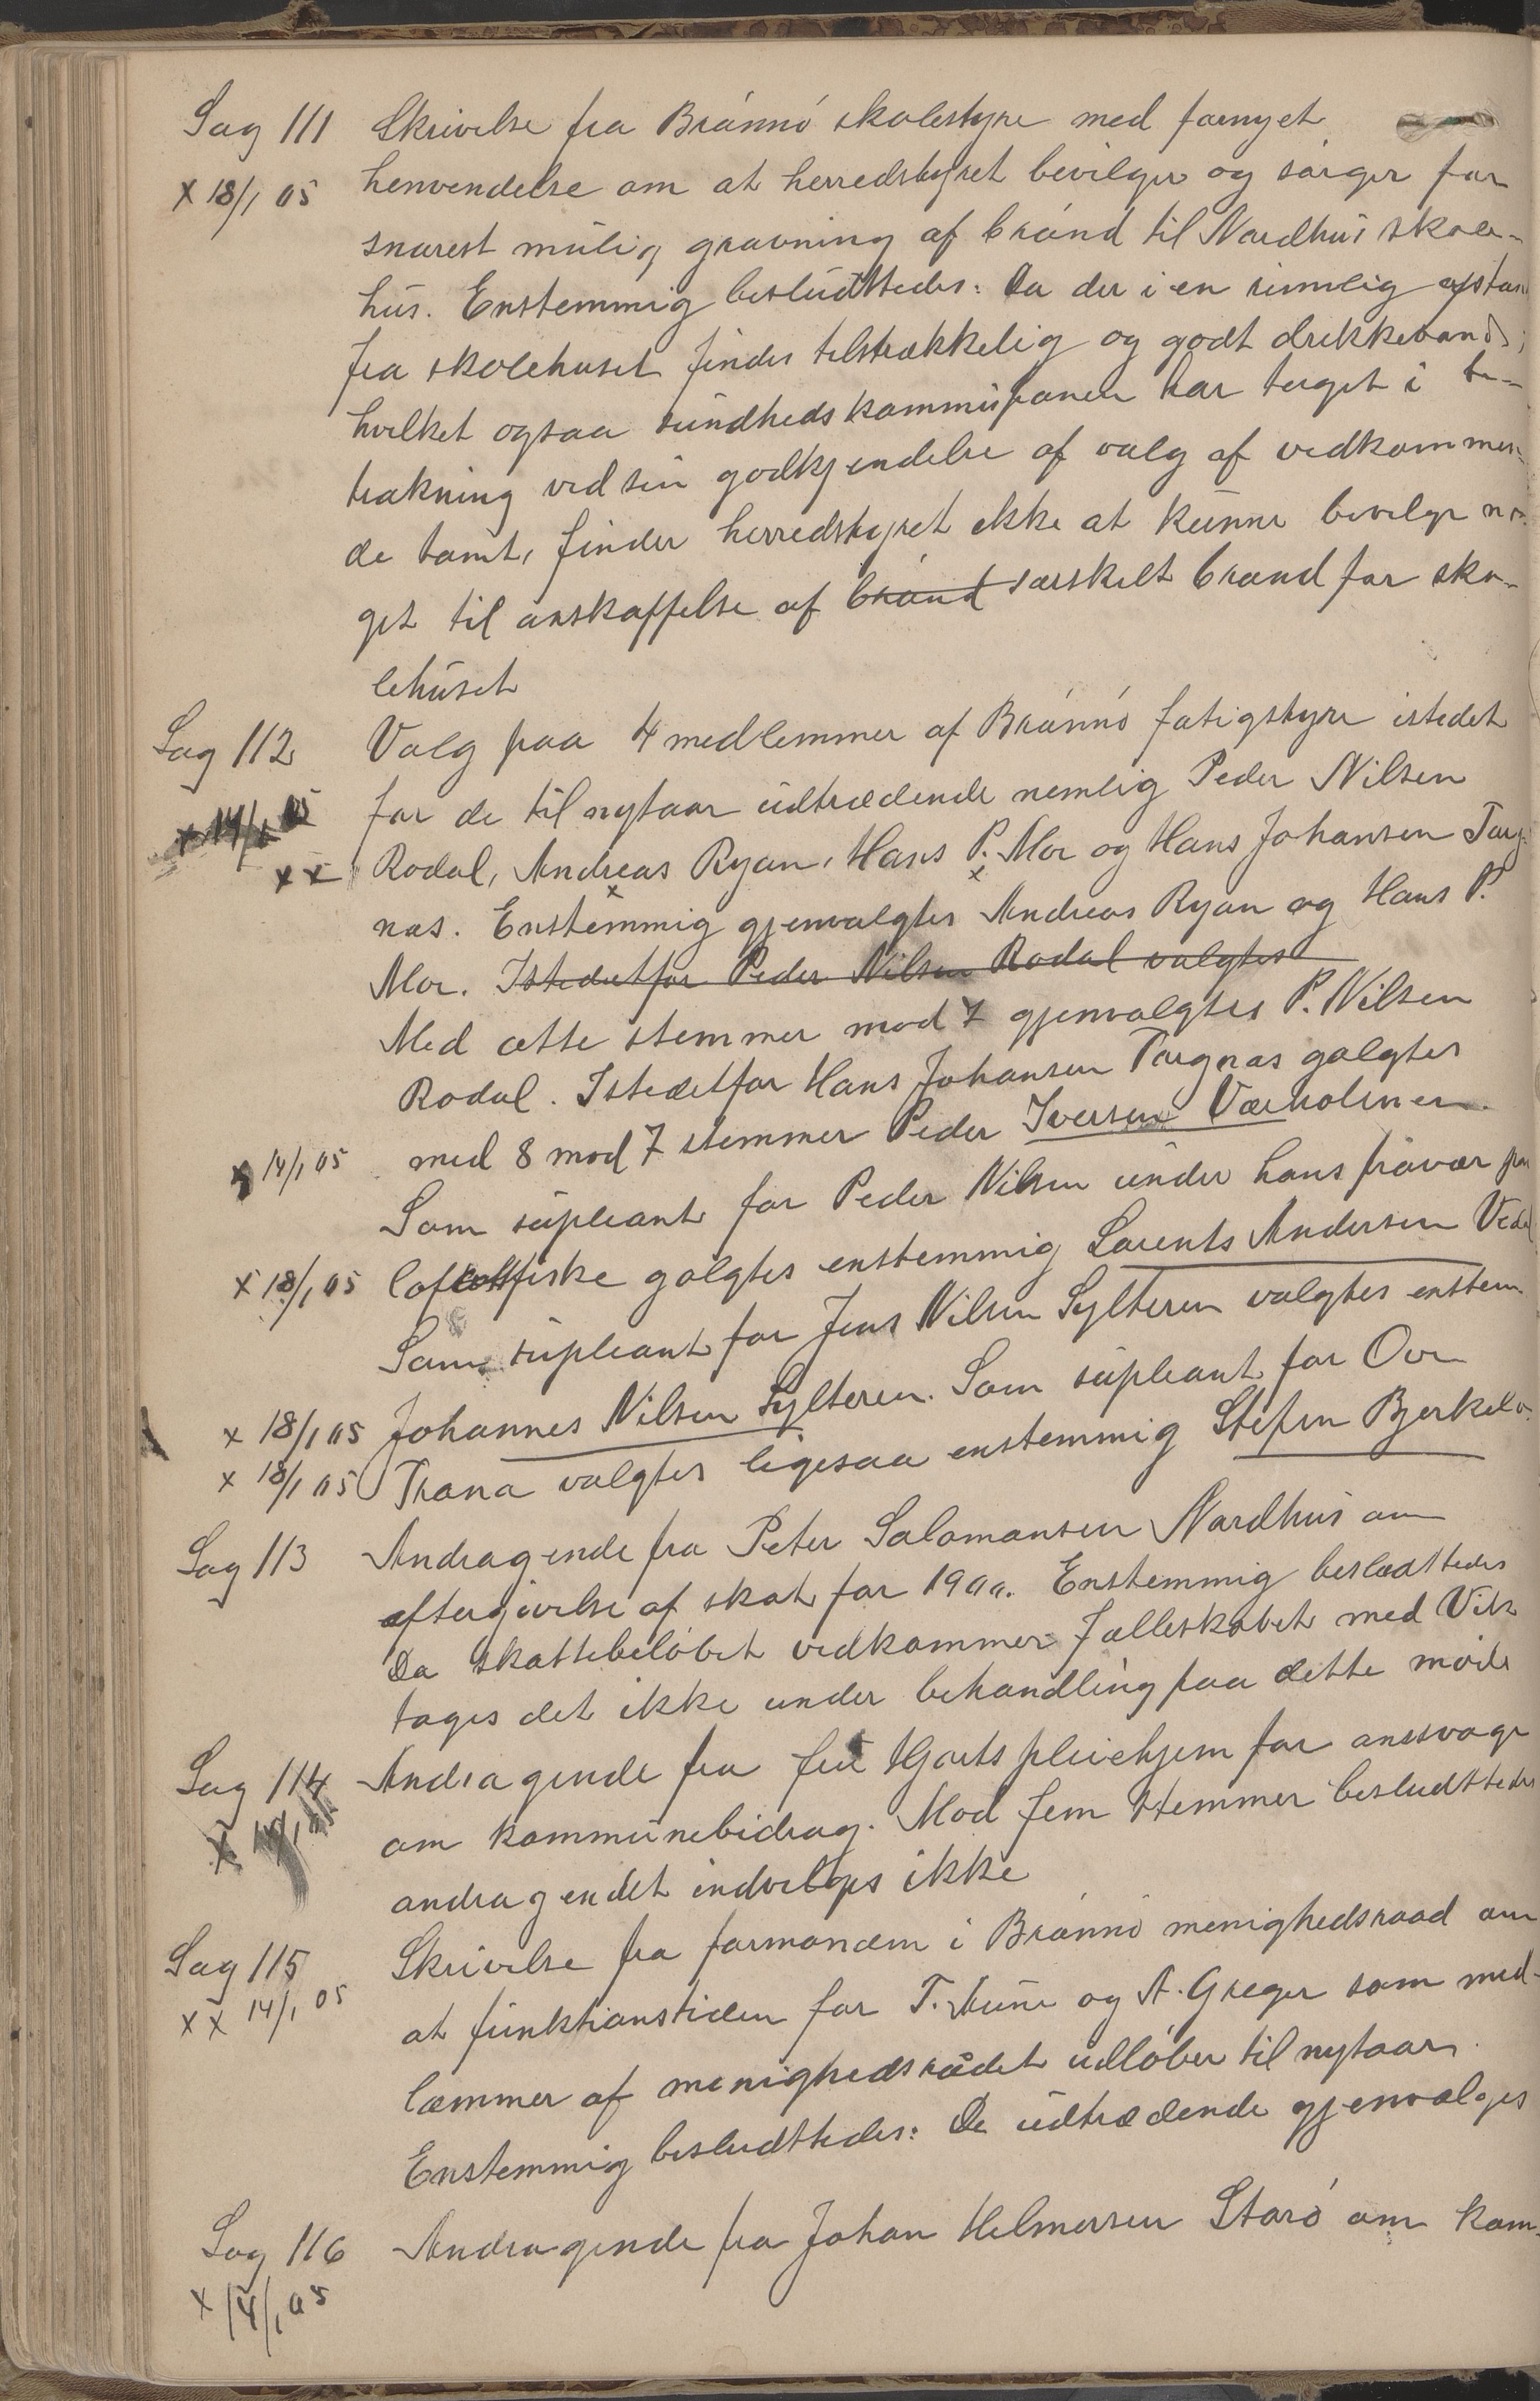 Sag 111 Skrivelse fra Brønnø skolestyre med fornyet
x 18/1 05 henvendelse om at herredstyret bevilger og sørger for
snarest mulig gravning af brønd til Nordhus skole-
hus. Enstemmig besludttedes: Da der i en rimelig afstan
fra skolehuset findes tilstrækkelig og godt drikkevand,
hvilket ogsaa sundhedskommisjonen har taget i be-
trakning ved sin godkjendelse af valg af vedkommen-
de tomt, finder herredstyret ikke at kunne bevilge no-
get til anskaffelse af brønd særskilt brønd for sko-
lehuset
Sag 112 Valg paa 4 medlemmer af Brønnø fatigstyre istedet
x 14/1 05 for de til nytaar udtrædende nemlig Peder Nilsen
x x Rodal, Andreas Ryan, Hans P. Mo og Hans Johansen Torg-
næs. Enstemmig gjenvalgtes Andreas Ryan og Hans P.
Moe. Istedetfor Peder Nilsen Rodal valgtes
Med otte stemmer mod 7 gjenvalgtes P. Nilsen
Rodal. Istedetfor Hans Johansen Torgnæs galgtes
x 14/1 05 med 8 mod 7 stemmer Peder Iversen Værholmen.
Som supleant for Peder Nilsen under hans fravær paa
x 18/1 05 lofotfiske galgtes enstemmig Lorents Andersen Vedal
Som supleant for Jens Nilsen Sylteren valgtes enstem
x 18/1 05 Johannes Nilsen Sylteren. Som supleant for Ove
x 18/1 05 Trana valgtes ligesaa enstemmig Stefen Bjerkelo
Sag 113 Andragende fra Peter Salomonsen Nordhus om
eftergivelse af skat for 1900. Enstemmig besludttedes
Da skattebeløbet vedkommer Fælleskabet med Vik
tages det ikke under behandling paa dette møde
Sag 114 Andragende fra fru Hjorts pleiehjem for anssvage
x 14/1 05 om kommunebidrag. Mod fem stemmer besludttedes
andragendet indvilges ikke
Sag 115 Skrivelse fra formanden i Brønnø menighedsraad om
x x 14/1 05 at funktionstiden for T. Aune og A. Greger som med-
lemmer af menighedsrådet udløber til nytaar.
Enstemmig besludttedes: De udtrædende gjenvælges
Sag 116 Andragende fra Johan Helmersen Storø om kom-
x 14/1 05